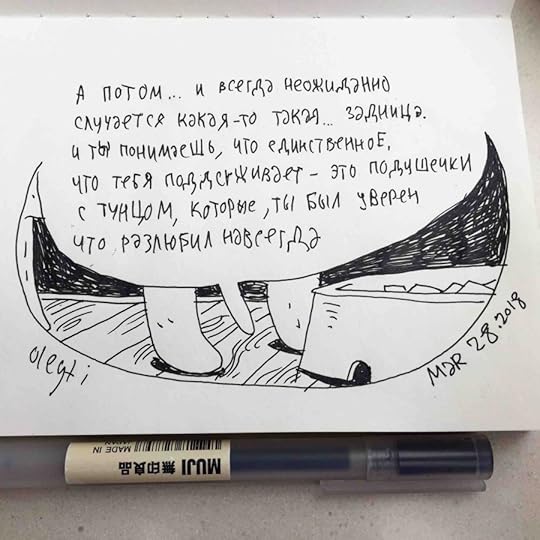 А ПОТОМ... и всегда неожиданно
случается какая-то такая... задница.
и ты понимаешь, что единственное,
что тебя поддерживает - это подушечки
с тунцом, которые, ты был уверен
что разлюбил навсегда
olegti
MAR 28.2018
MUJI 無印良品
MADE IN JAPAN